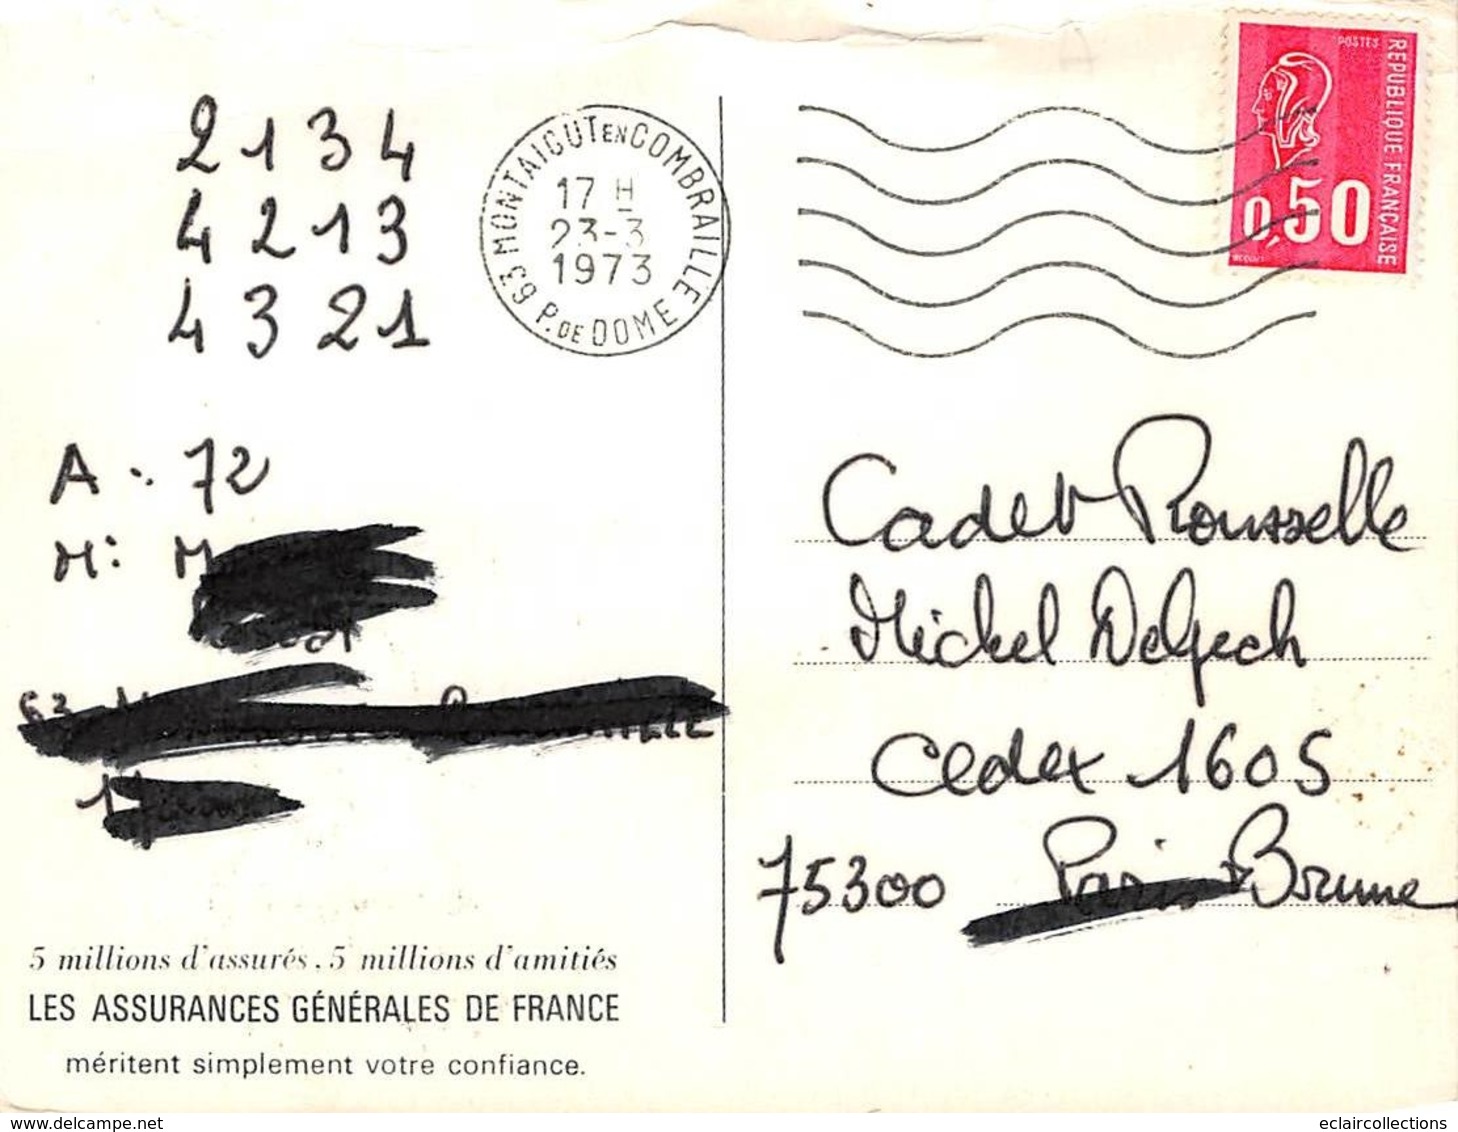 2 1 3 4
4 2 1 3
4 3 2 1
63 MONTAIGUT EN COMBRAILLE
17 H
23-3
1973
P. DE DOME
POSTES
REPUBLIQUE FRANÇAISE
0,50
A : 72
M :
Cadet Rousselle
Michel Delpech
Cedex 1605
75300 Paris Brune
5 millions d'assurés . 5 millions d'amitiés
LES ASSURANCES GÉNÉRALES DE FRANCE
méritent simplement votre confiance.
eclaircollections